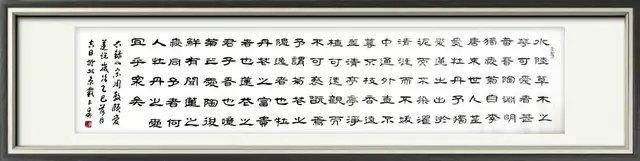 水陸草木之
華可愛者甚
蕃晉陶淵明
獨愛菊自李
唐来世人甚
愛牡丹予獨
愛蓮之出淤
泥而不染濯
清漣而不妖
中通外直不
蔓不枝香遠
益清亭亭淨
植可遠觀而
不可褻翫焉
予謂菊華之
隱逸者也牡
丹華之富貴
者也蓮華之
君子者也噫
菊之愛陶後
鮮有聞蓮之
愛同予者何
人牡丹之愛
宜乎衆矣
北宋周敦頤愛
蓮說歲次乙巳荷月
吉日於北京